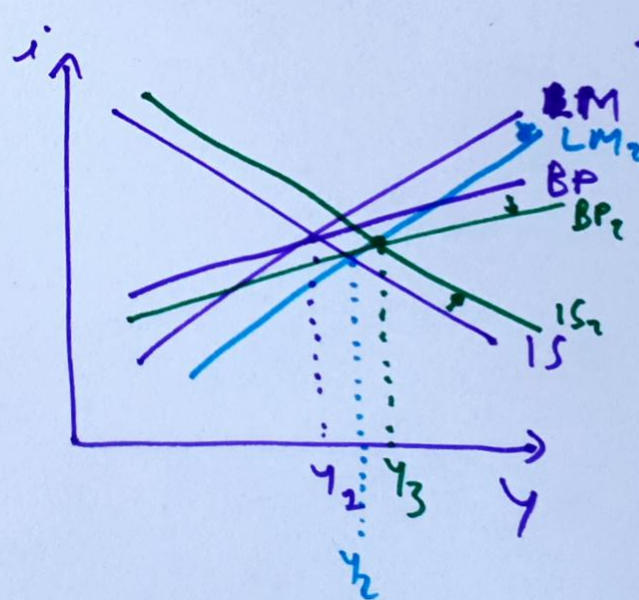 i
LM
LM2
BP
BP2
IS2
IS
Y2
Y3
Y
Y2